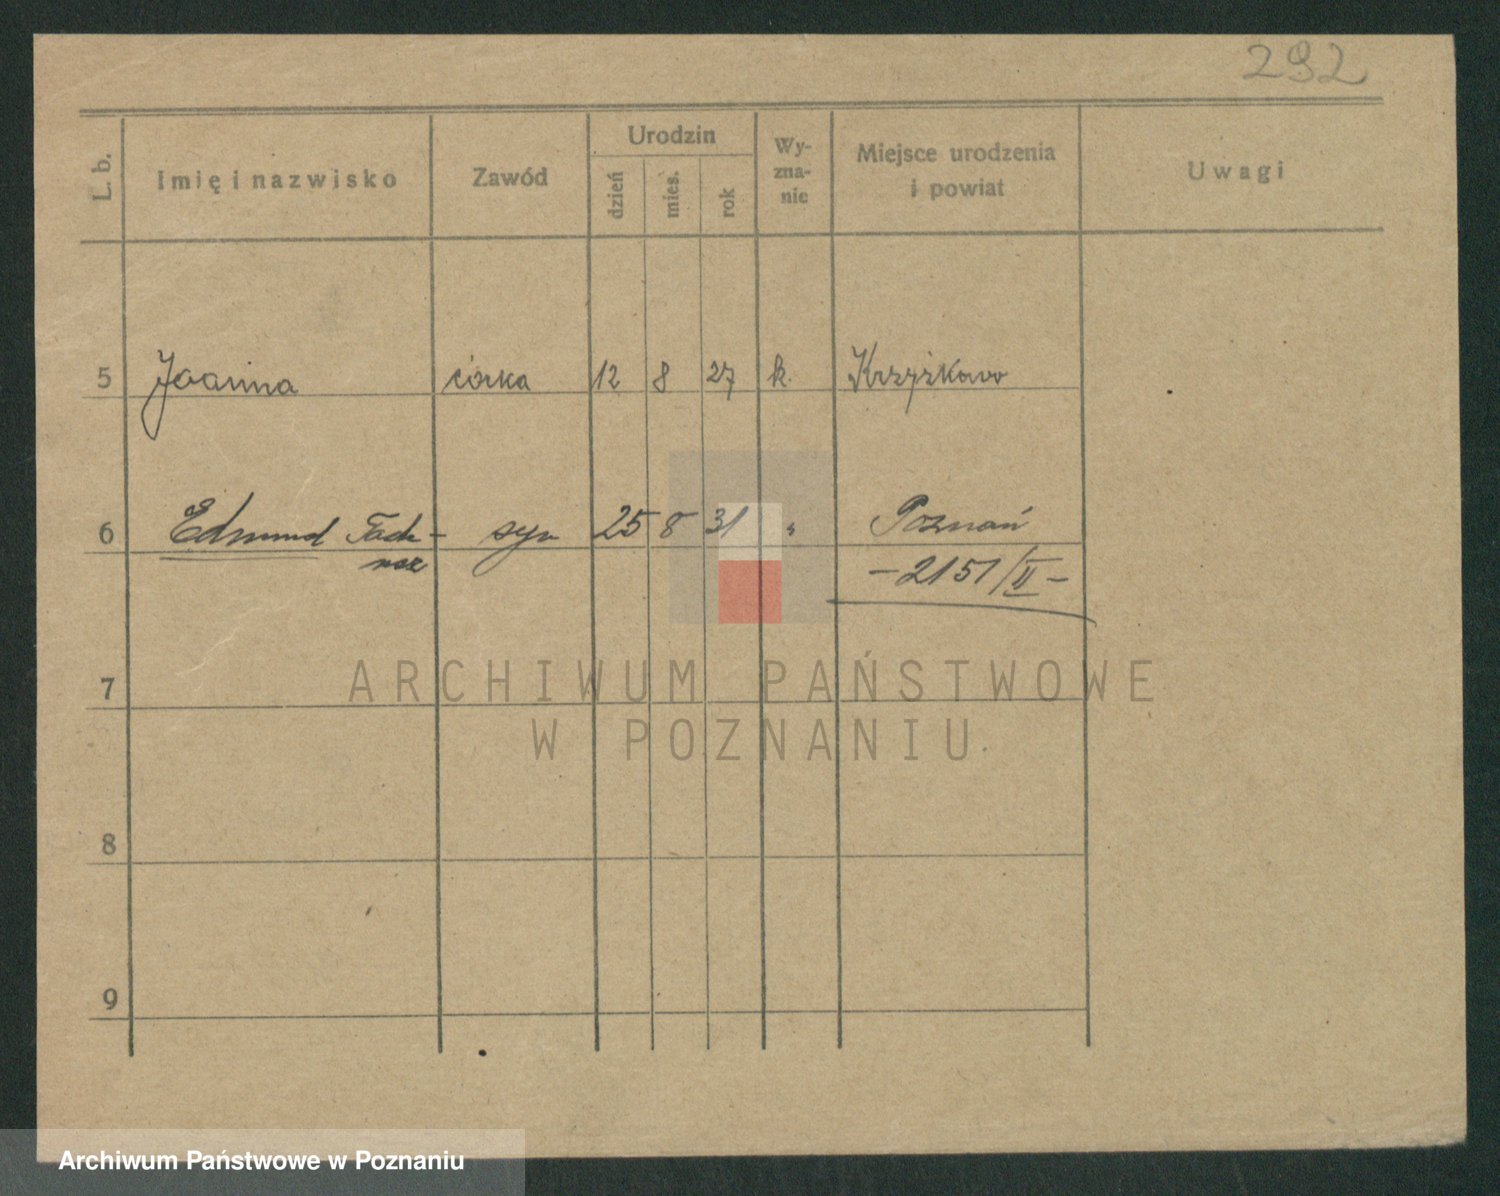 292
L. b.
Imię i nazwisko
Zawód
Urodzin
dzień
mies.
rok
Wy-
zna-
nie
Miejsce urodzenia
i powiat
Uwagi
5 Joanna córka 12 8 27 k. Krzyżkowo
6 Edmund Tade- syn 25 8 31 " Poznań
usz - 2151/II -
7
8
9
ARCHIWUM PAŃSTWOWE
W POZNANIU
Archiwum Państwowe w Poznaniu